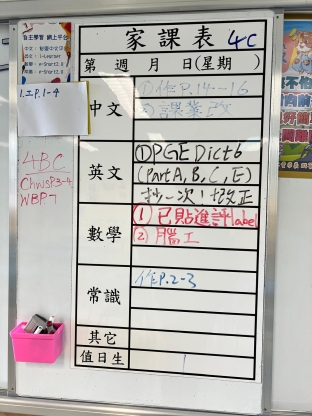 自主學習 網上平台
家課表 4C
第 週 月 日(星期 )
1. P.1-4
中文
①作P.14-16
②課業改
4BC
Chws P3-4
WBP.7
英文
①PGE Dict 6
(Part A, B, C, E)
抄一次!改正
數學
① 已貼進評label
② 腦工
常識
作P.2-3
其它
值日生